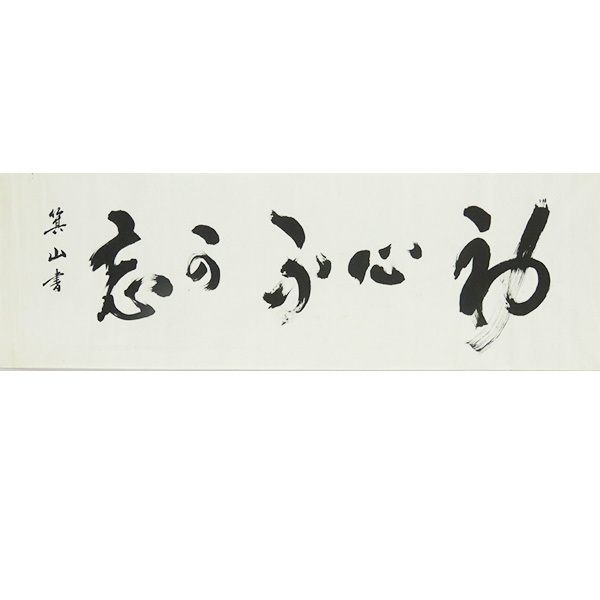 初心不可忘
箕山書